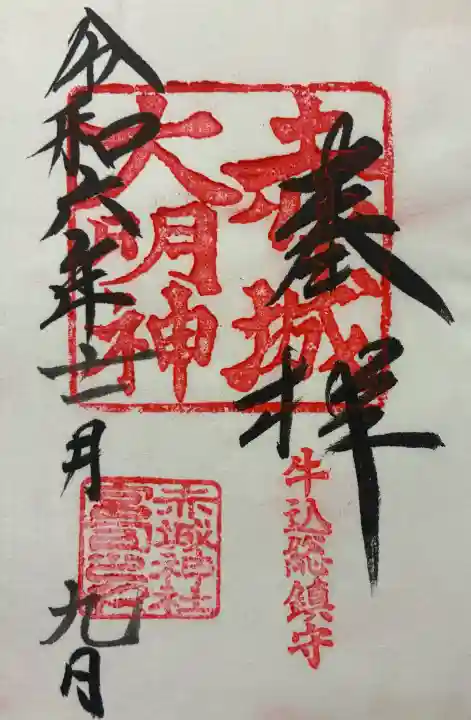 奉拝
赤城
大明神
牛込総鎮守
赤城神社
令和六年十一月九日